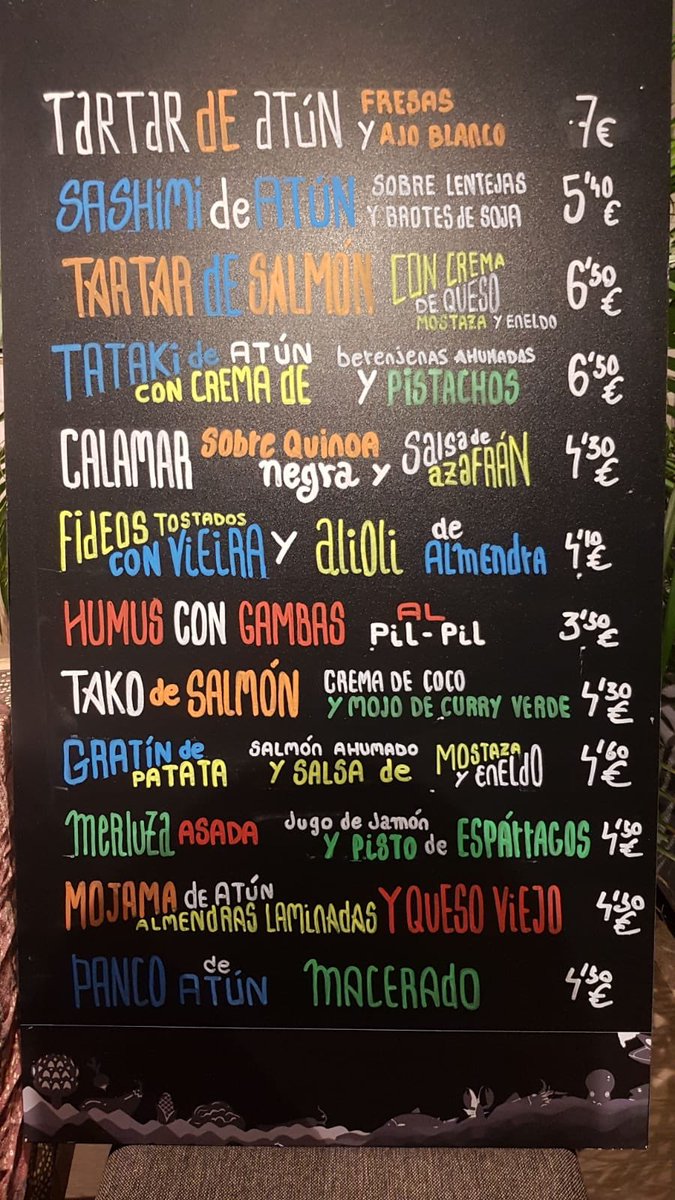 TARTAR DE ATÚN FRESAS Y AJO BLANCO 7€
SASHIMI de ATÚN SOBRE LENTEJAS Y BROTES DE SOJA 5'40€
TARTAR DE SALMÓN CON CREMA DE QUESO MOSTAZA Y ENELDO 6'50€
TATAKI de ATÚN CON CREMA DE berenjenas AHUMADAS Y PISTACHOS 6'50€
CALAMAR SOBRE QUINOA negra y Salsa de AZAFRÁN 4'30€
FIDEOS TOSTADOS CON VIEIRA Y aliOLi de ALMENDRA 4'10€
HUMUS CON GAMBAS AL PiL-PiL 3'50€
TAKO de SALMÓN CREMA DE COCO Y MOJO DE CURRY VERDE 4'30€
GRATÍN de PATATA SALMÓN AHUMADO Y SALSA de MOSTAZA Y ENELDO 4'60€
MERLUZA ASADA Jugo de Jamón Y PISTO de ESPÁRRAGOS 4'50€
MOJAMA de ATÚN ALMENDRAS LAMINADAS Y QUESO VIEJO 4'30€
PANCO de ATÚN MACERADO 4'50€